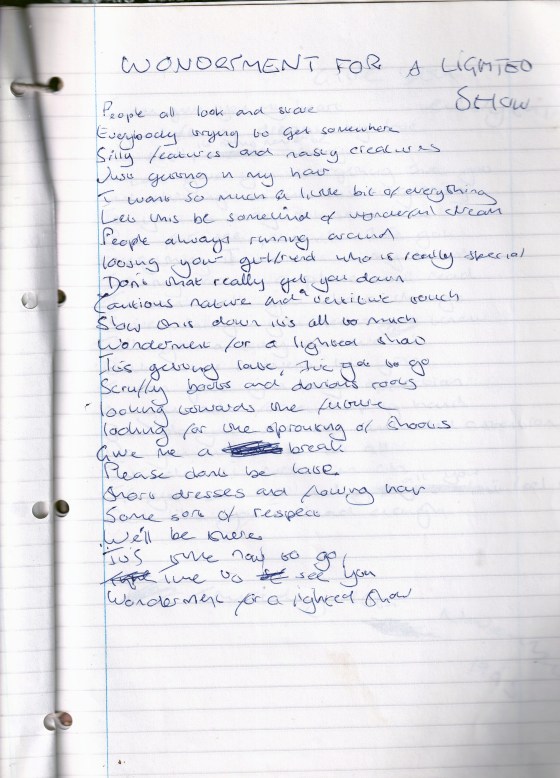 WONDERMENT FOR A LIGHTED
SHOW
People all look and stare
Everybody trying to get somewhere
Silly features and nasty creatures
Just getting in my hair
I want so much a little bit of everything
Let this be somekind of wonderful dream
People always running around
loosing your girlfriend who is really special
Don't that really get you down
Cautious nature and a sensitive touch
Slow this down it's all to much
Wonderment for a lighted show
It's getting late, I've got to go
Scruffy boots and devious roots
looking towards the future
looking for the sprouting of shoots
Give me a break
Please don't be late
Short dresses and flowing hair
Some sort of respect
We'll be there
It's time now to go,
time to see you
Wonderment for a lighted show